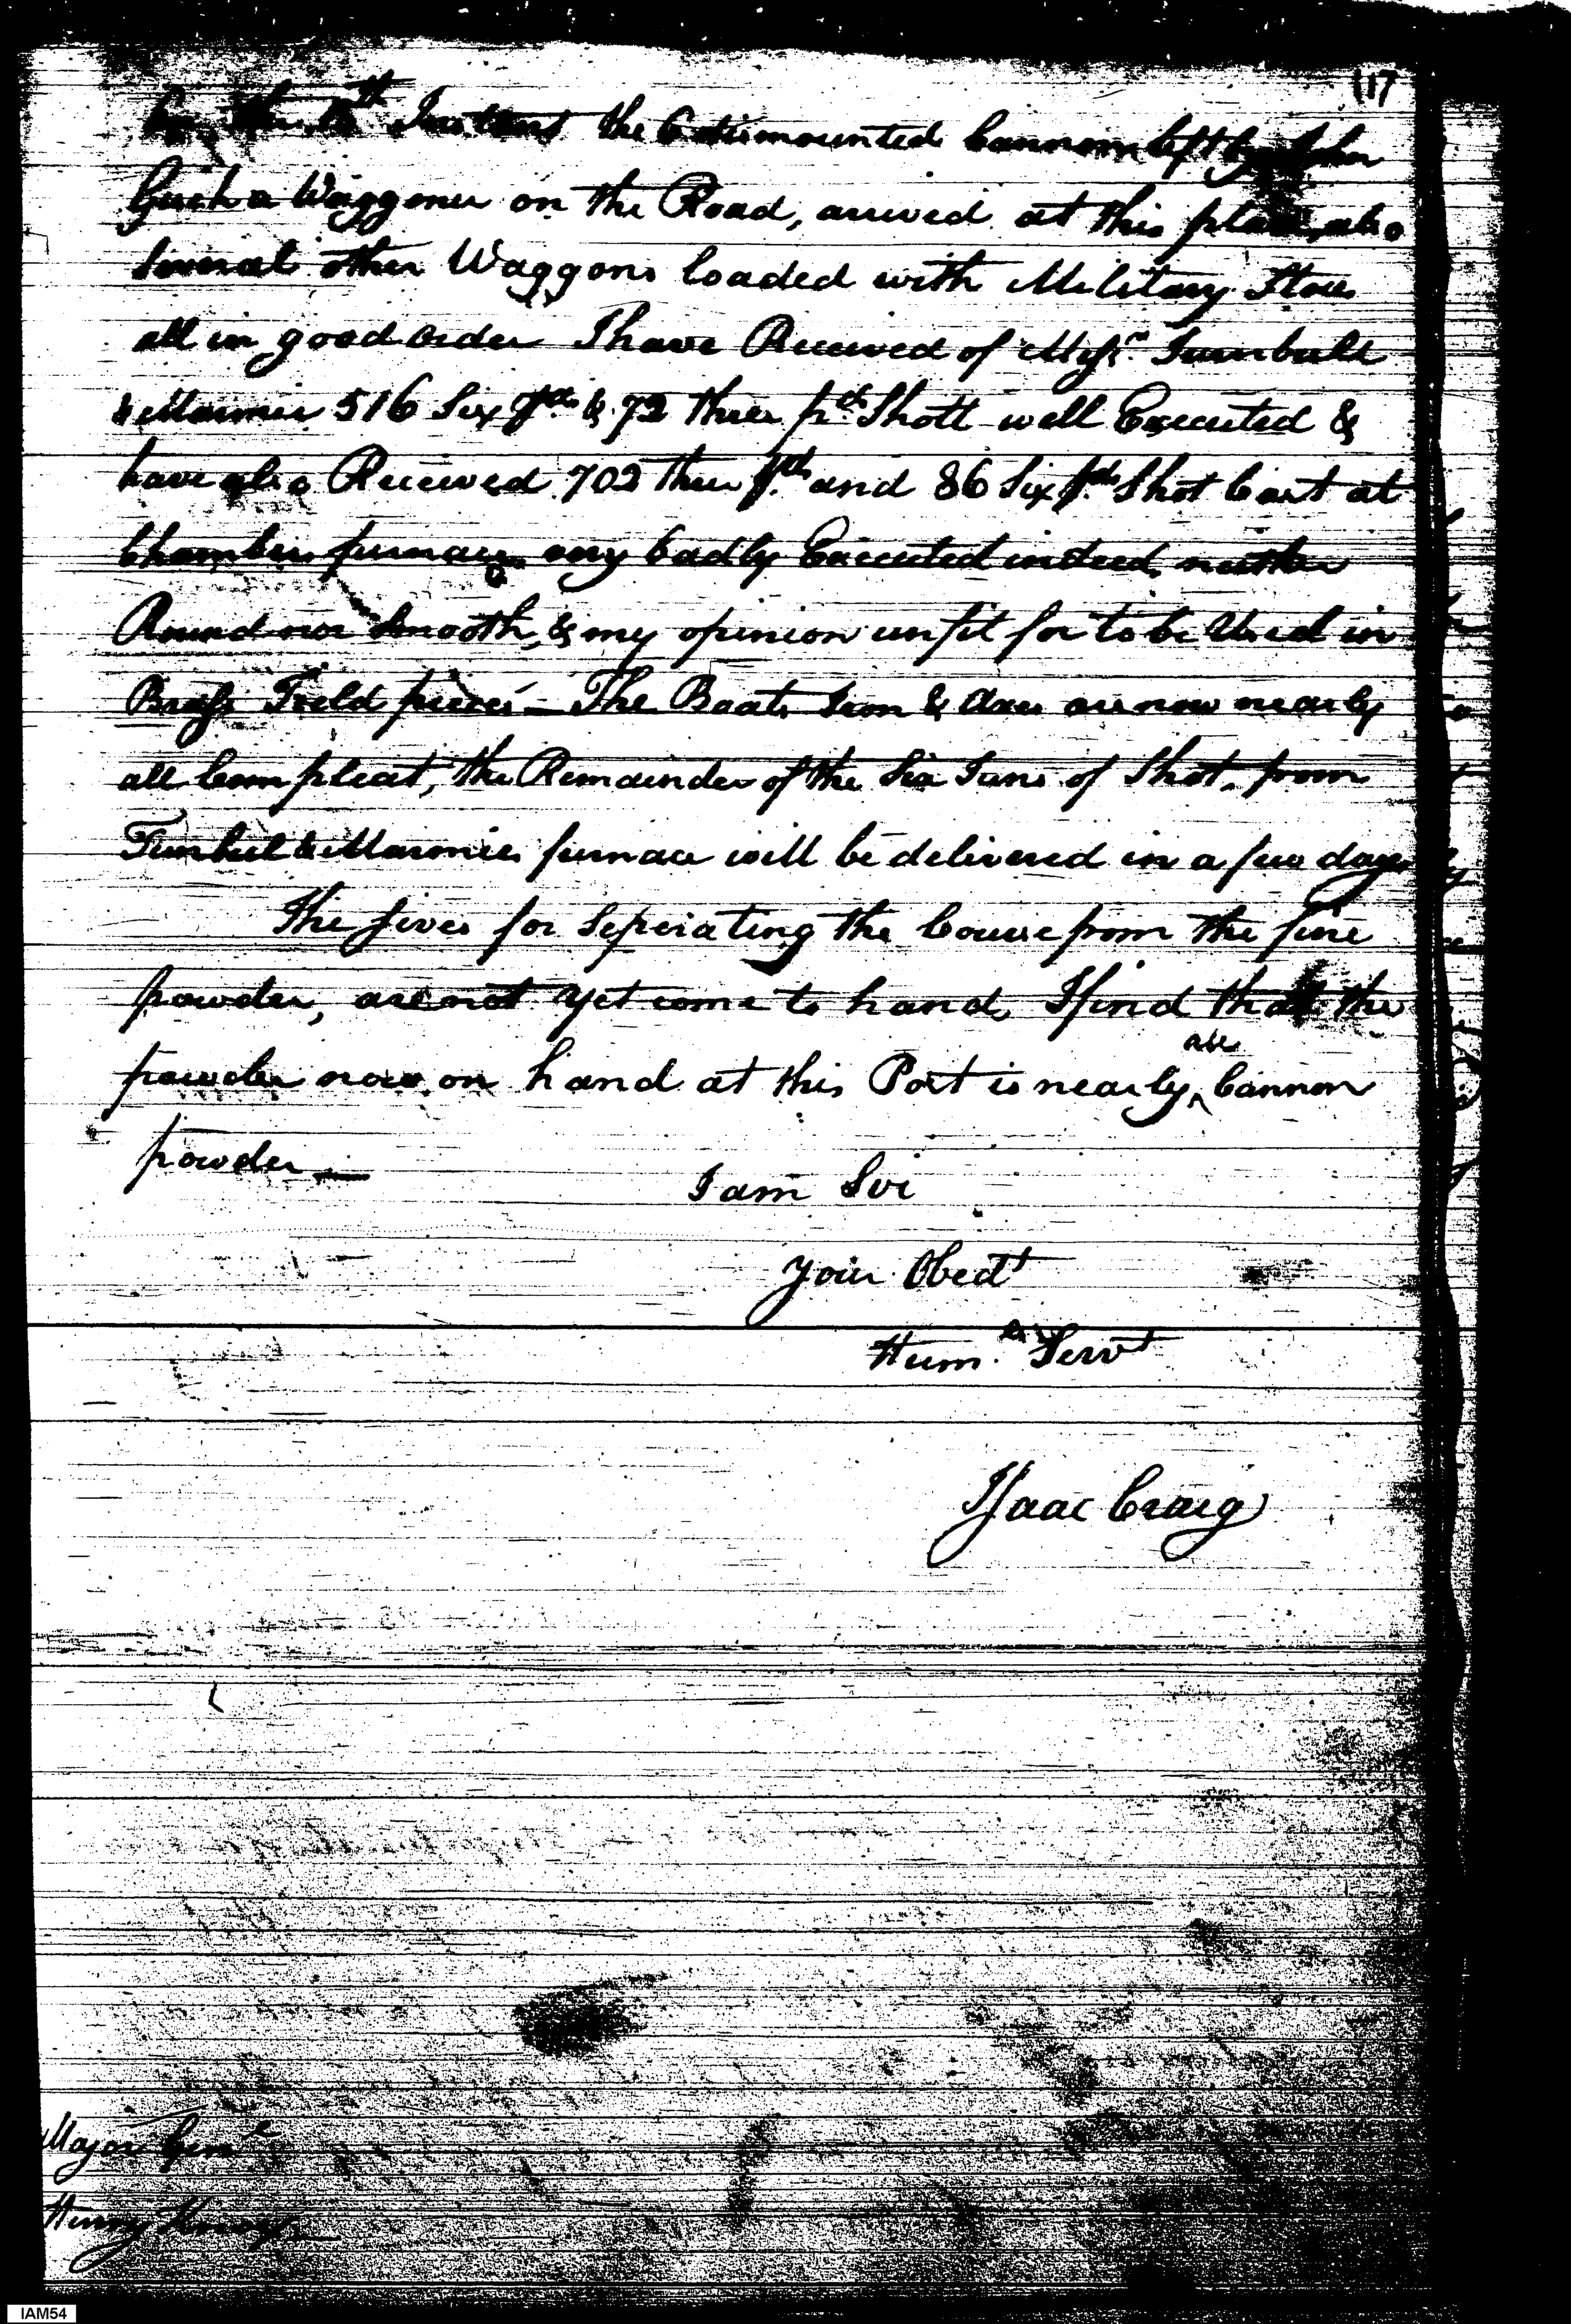 117
Instant the 6 dismounted Cannon left by John
a Waggoner on the Road, arrived at this place, also
Several other Waggons loaded with Military Stores
all in good order I have Received of Messrs. Turnbull
& Marmie 516 Six pds. & 72 three pd. Shott well Executed &
have also Received 702 three pds. and 86 Six pds. Shot Cast at
Chambers furnace very badly Executed indeed, neither
Round nor Smooth, & my opinion unfit for to be Used in
Brass Field pieces — The Boats Iron & Axes are now nearly
all Compleat, the Remainder of the Six Tuns of Shot, from
Turnbul & Marmies furnace will be delivered in a few days
The sives for Seperating the Course from the fine
powder, are not yet come to hand, I find that the
powder now on hand at this Post is nearly ^all Cannon
powder —
I am Sir
Your Obedt
Humble Servt
Isaac Craig
Major Genl
Henry Knox
IAM54